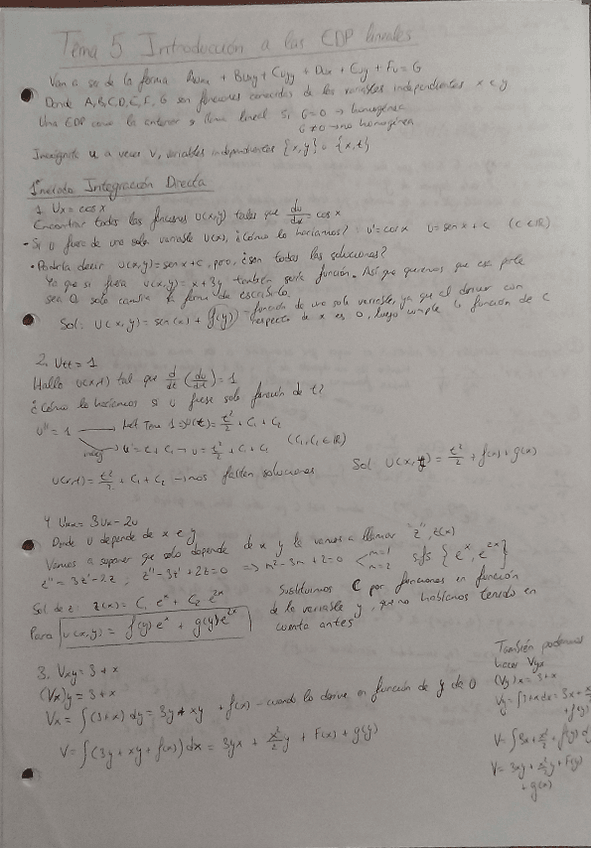 Tema 5 Introducción a las EDP lineales
Van a ser de la forma: Auxx + Buxy + Cuyy + Dux + Euy + Fu = G
Donde A, B, C, D, E, F, G son funciones conocidas de las variables independientes x e y
Una EDP como la anterior se llama lineal si G=0 → homogénea
G≠0 → no homogénea
Incógnita u a veces v, variables independientes {x,y} o {x,t}
1º método Integración Directa
1. Ux = cos x
Encontrar todas las funciones u(x,y) tales que du/dx = cos x
- Si u fuera de una sola variable u(x), ¿Cómo lo haríamos? u' = cos x u = sen x + c (c∈R)
• Podría decir u(x,y) = sen x + c, pero, ¿son todas las soluciones?
Ya que si fuera u(x,y) = x + 3y también sería función. Así que queremos que esa parte
sea 0 solo cambia la forma de escribirlo.
Sol: u(x,y) = sen(x) + g(y) - función de una sola variable, ya que al derivar con
respecto de x es 0, luego cumple la función de C
2. Utt = 1
Halla u(x,t) tal que d/dt (du/dt) = 1
¿Cómo lo haríamos si u fuese solo función de t?
u'' = 1 → u(t) = t²/2 + C1 + C2
u' = t + C1 → u = t²/2 + C1 + C2 (C1, C2 ∈ R)
u(x,t) = t²/2 + C1 + C2 → nos faltan soluciones Sol: u(x,t) = t²/2 + f(x) + g(x)
4. Uxx = 3Ux - 2u
Donde u depende de x e y
Vamos a suponer que solo depende de x y le vamos a llamar "z", z(x)
z'' = 3z' - 2z ; z'' - 3z' + 2z = 0 ⇒ m² - 3m + 2 = 0 < m=1 m=2 sfs {e^x, e^2x}
Sol de z: z(x) = C1 e^x + C2 e^2x
Sustituimos C por funciones en función
de la variable y, que no habíamos tenido en
cuenta antes
Para u(x,y) = f(y) e^x + g(y) e^2x
3. Vxy = 3 + x
(Vx)y = 3 + x
Vx = ∫(3+x) dy = 3y + xy + f(x) - cuando lo derive en función de y da 0
V = ∫(3y + xy + f(x)) dx = 3yx + x²/2 y + F(x) + g(y)
También podemos
hacer Vyx
(Vy)x = 3 + x
Vy = ∫3+x dx = 3x + x²/2
+ f(y)
V = ∫3x + x²/2 + f(y) dy
V = 3xy + x²/2 y + F(y)
+ g(x)